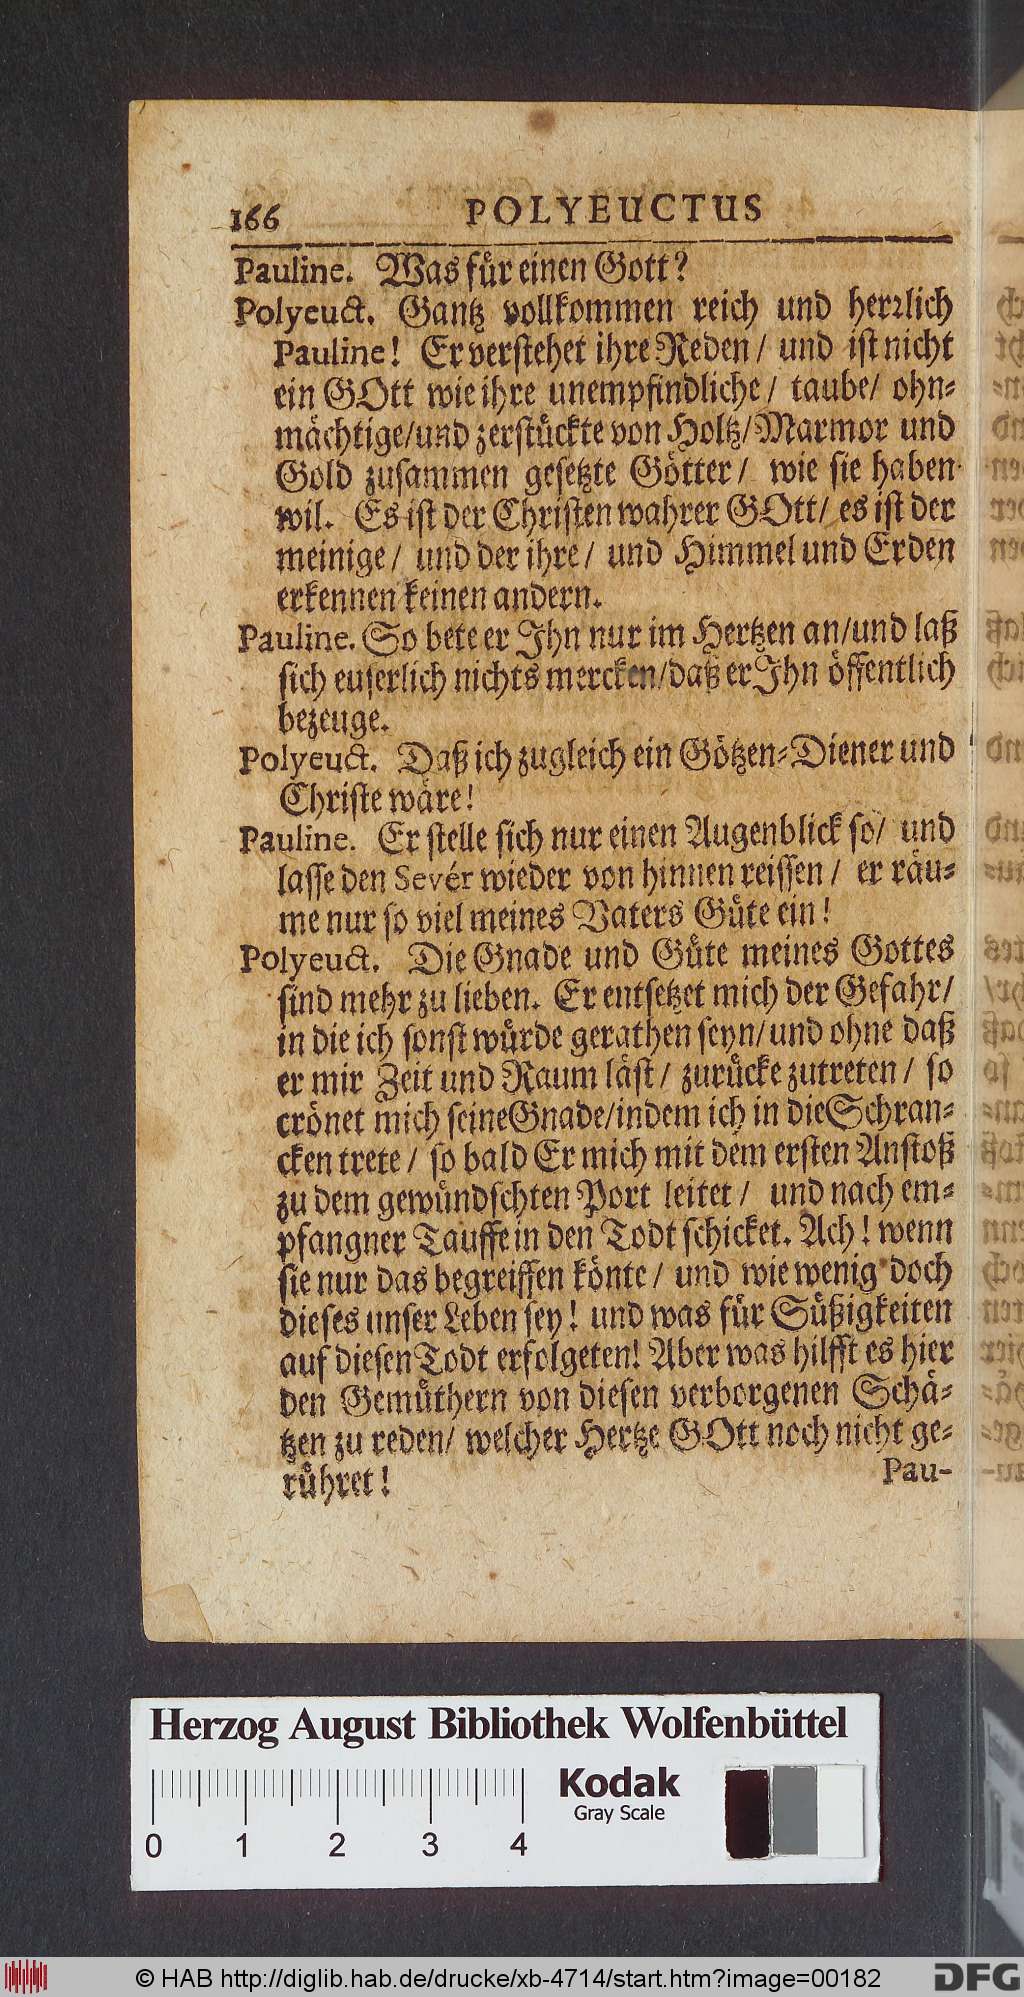 166 POLYEUCTUS
Pauline. Was für einen Gott?
Polyeuct. Gantz vollkommen reich und herꝛlich
Pauline! Er verstehet ihre Reden/ und ist nicht
ein GOtt wie ihre unempfindliche/ taube/ ohn-
mächtige/und zerstückte von Holtz/Marmor und
Gold zusammen gesetzte Götter/ wie sie haben
wil. Es ist der Christen wahrer GOtt/ es ist der
meinige/ und der ihre/ und Himmel und Erden
erkennen keinen andern.
Pauline. So bete er Jhn nur im Hertzen an/und laß
sich euserlich nichts mercken/daß er Jhn öffentlich
bezeuge.
Polyeuct. Daß ich zugleich ein Götzen-Diener und
Christe wäre!
Pauline. Er stelle sich nur einen Augenblick so/ und
lasse den Sevér wieder von hinnen reissen/ er räu-
me nur so viel meines Vaters Güte ein!
Polyeuct. Die Gnade und Güte meines Gottes
sind mehr zu lieben. Er entsetzet mich der Gefahr/
in die ich sonst würde gerathen seyn/und ohne daß
er mir Zeit und Raum läst/ zurücke zutreten/ so
crönet mich seine Gnade/indem ich in die Schran-
cken trete/ so bald Er mich mit dem ersten Anstoß
zu dem gewündschten Port leitet/ und nach em-
pfangner Tauffe in den Todt schicket. Ach! wenn
sie nur das begreiffen könte/ und wie wenig doch
dieses unser Leben sey! und was für Süßigkeiten
auf diesen Todt erfolgeten! Aber was hilfft es hier
den Gemüthern von diesen verborgenen Schä-
tzen zu reden/ welcher Hertze GOtt noch nicht ge-
rühret!
Pau-
Herzog August Bibliothek Wolfenbüttel
Kodak
Gray Scale
0 1 2 3 4
© HAB http://diglib.hab.de/drucke/xb-4714/start.htm?image=00182
DFG